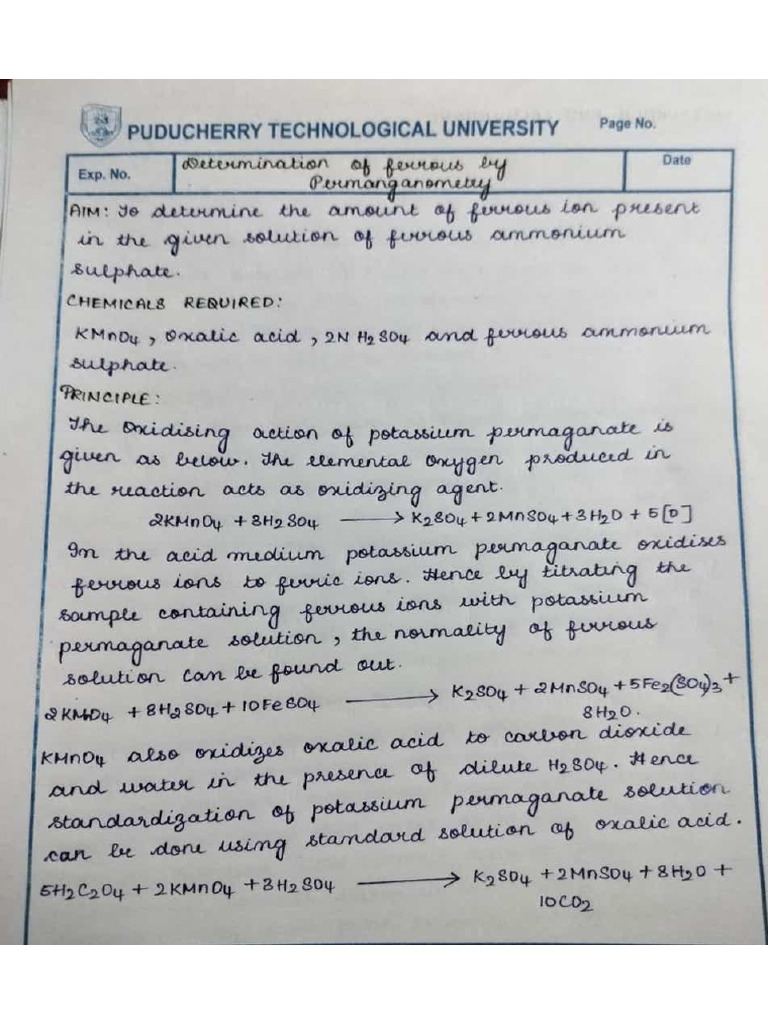 PUDUCHERRY TECHNOLOGICAL UNIVERSITY Page No.
Exp. No. Determination of ferrous by Date
Permanganometry
AIM: To determine the amount of ferrous ion present
in the given solution of ferrous ammonium
sulphate.
CHEMICALS REQUIRED:
KMnO4, Oxalic acid, 2N H2SO4 and ferrous ammonium
sulphate.
PRINCIPLE:
The Oxidising action of potassium permaganate is
given as below. The elemental oxygen produced in
the reaction acts as oxidizing agent.
2KMnO4 + 3H2SO4 ⟶ K2SO4 + 2MnSO4 + 3H2O + 5[O]
In the acid medium potassium permaganate oxidises
ferrous ions to ferric ions. Hence by titrating the
sample containing ferrous ions with potassium
permaganate solution, the normality of ferrous
solution can be found out.
2KMnO4 + 8H2SO4 + 10FeSO4 ⟶ K2SO4 + 2MnSO4 + 5Fe2(SO4)3 +
8H2O.
KMnO4 also oxidizes oxalic acid to carbon dioxide
and water in the presence of dilute H2SO4. Hence
standardization of potassium permaganate solution
can be done using standard solution of oxalic acid.
5H2C2O4 + 2KMnO4 + 3H2SO4 ⟶ K2SO4 + 2MnSO4 + 8H2O +
10CO2